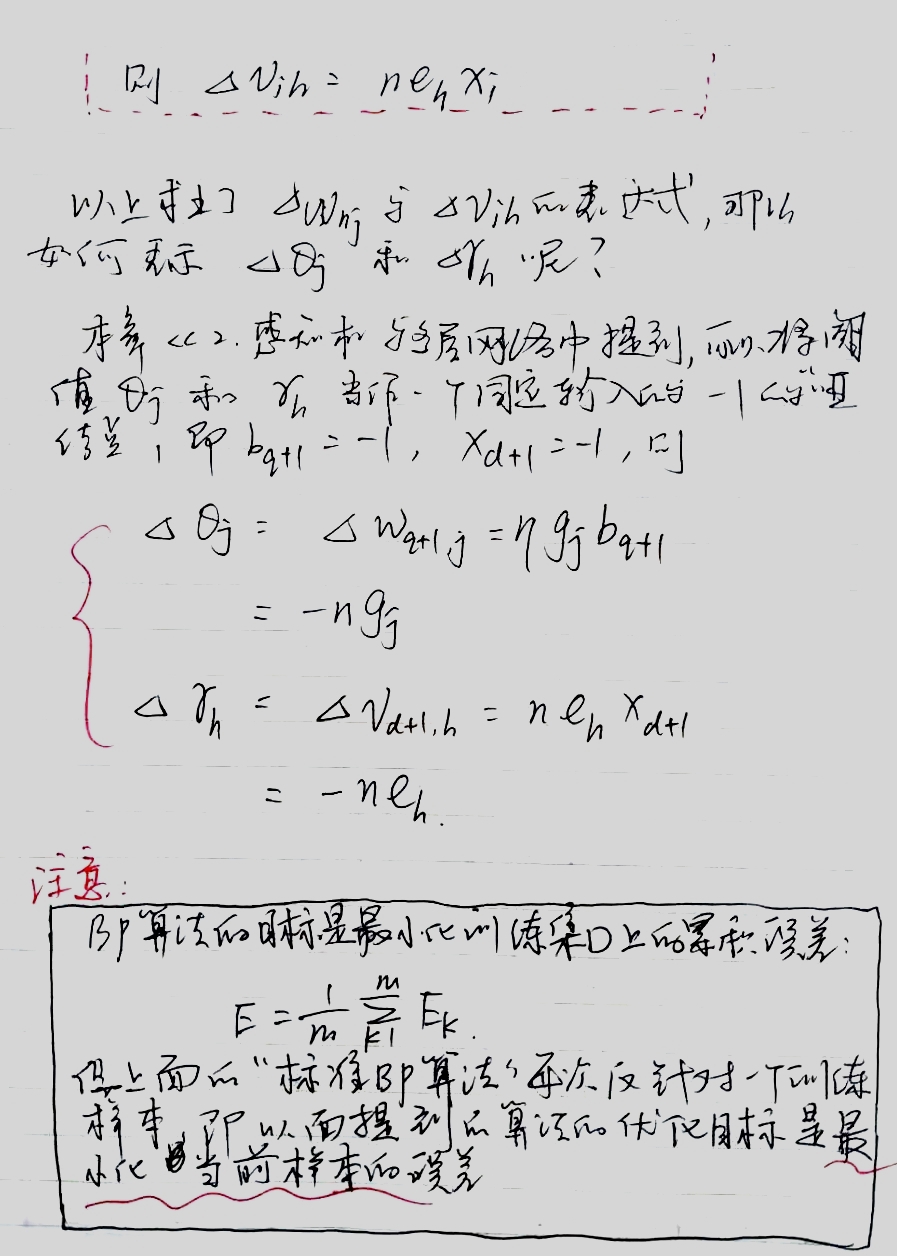 则 Δv_ih = ηe_h x_i
以上求出了 Δw_hj 与 Δv_ih 的表达式,那么
如何表示 Δθ_j 和 Δγ_h 呢?
本章<<2.感知机与多层网络中提到,可以将阈
值 θ_j 和 γ_h 当作一个固定输入为 -1 的"哑
结点,即 b_q+1 = -1, x_d+1 = -1,则
Δθ_j = Δw_q+1,j = ηg_j b_q+1
= -ηg_j
Δγ_h = Δv_d+1,h = ηe_h x_d+1
= -ηe_h.
注意:
BP算法的目标是最小化训练集D上的累积误差:
E = 1/m m∑k=1 E_k.
但上面的"标准BP算法"每次仅针对一个训练
样本,即以面提到的算法的优化目标是最
小化当前样本的误差